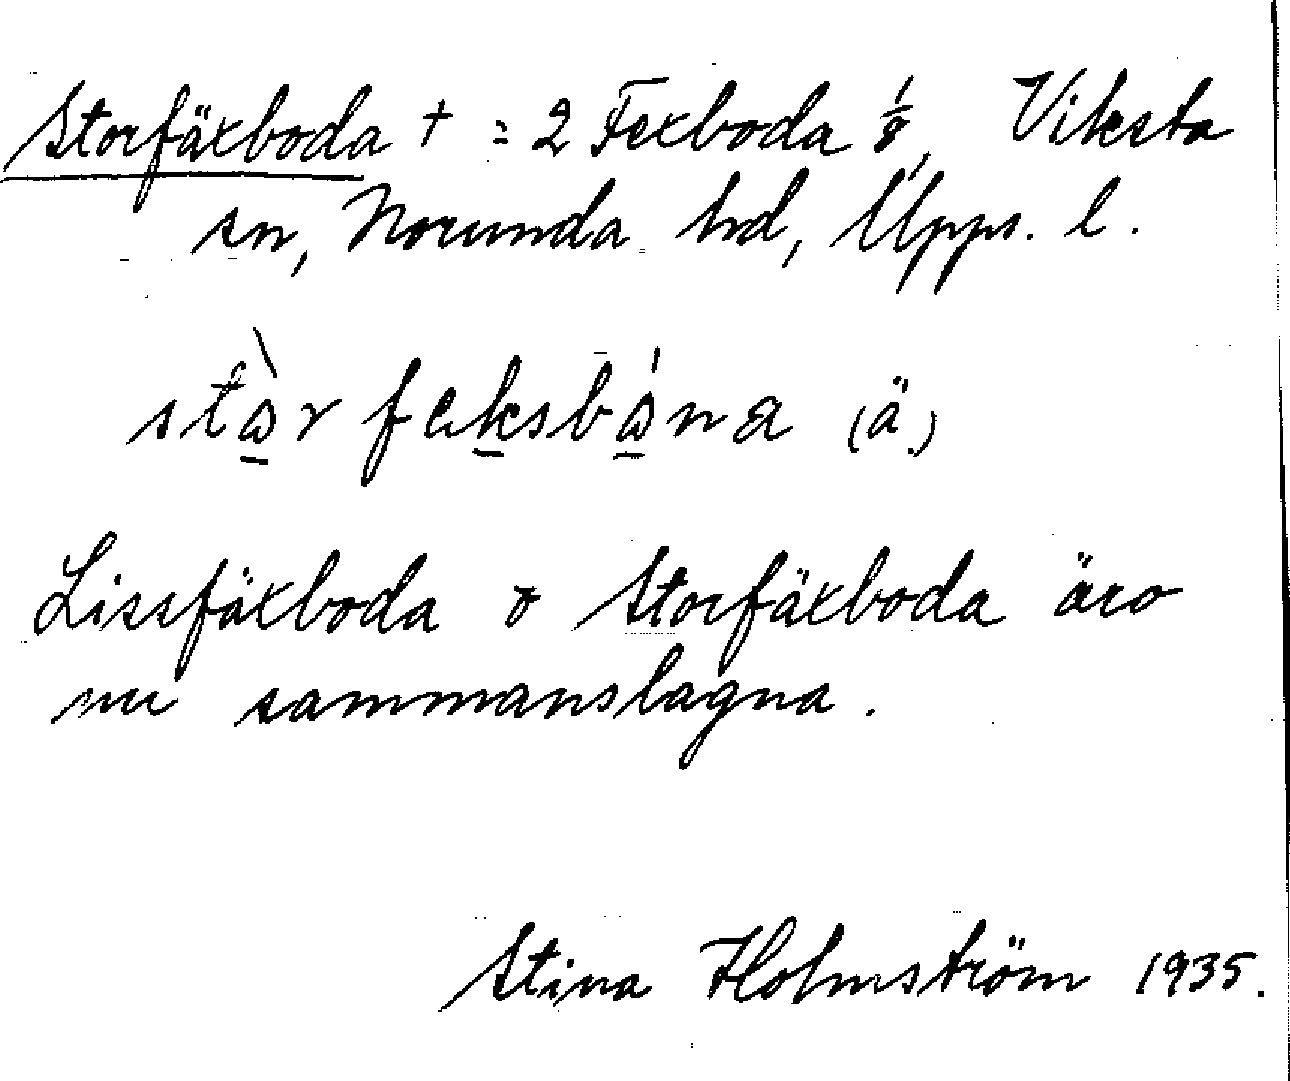 Storfäxboda + = 2 Fexboda 1/8, Viksta
sn, Norunda hd, Upps. l.
stὰr feksbána (ä.)
Lissfäxboda o Storfäxboda äro
nu sammanslagna.
Stina Holmström 1935.